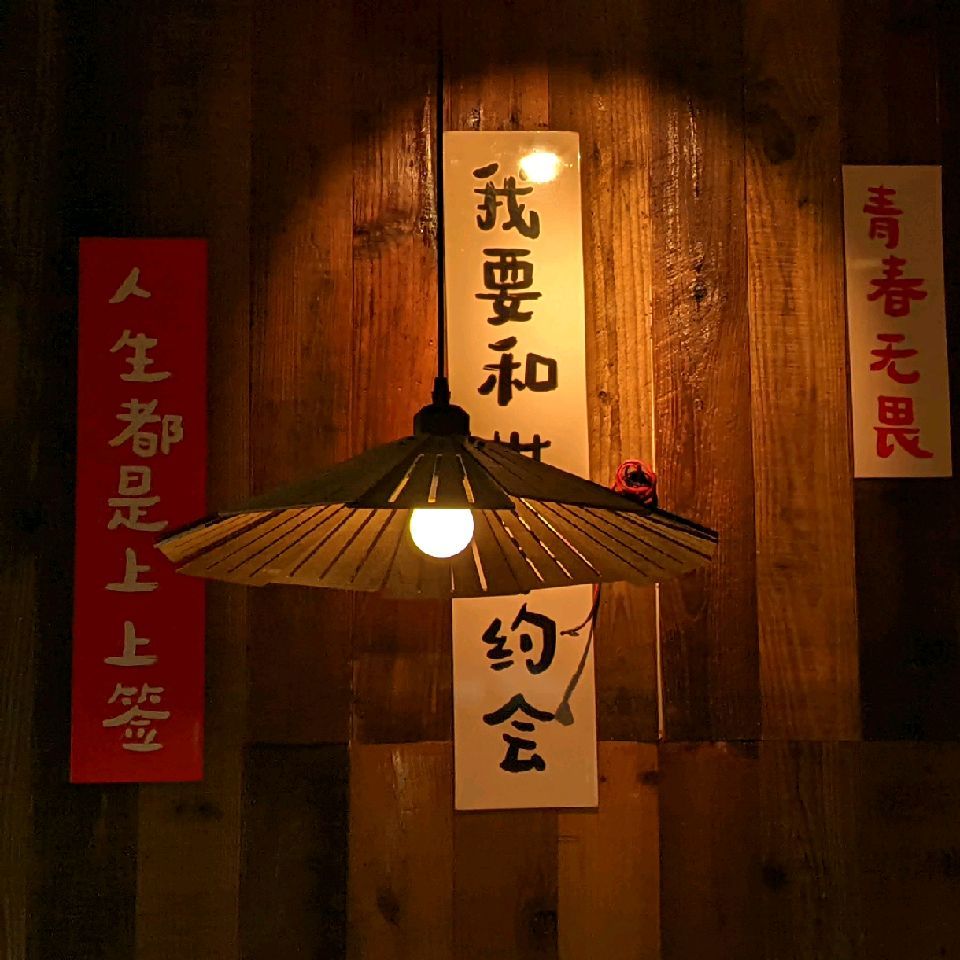 人生都是上上签
我要和
约会
青春无畏